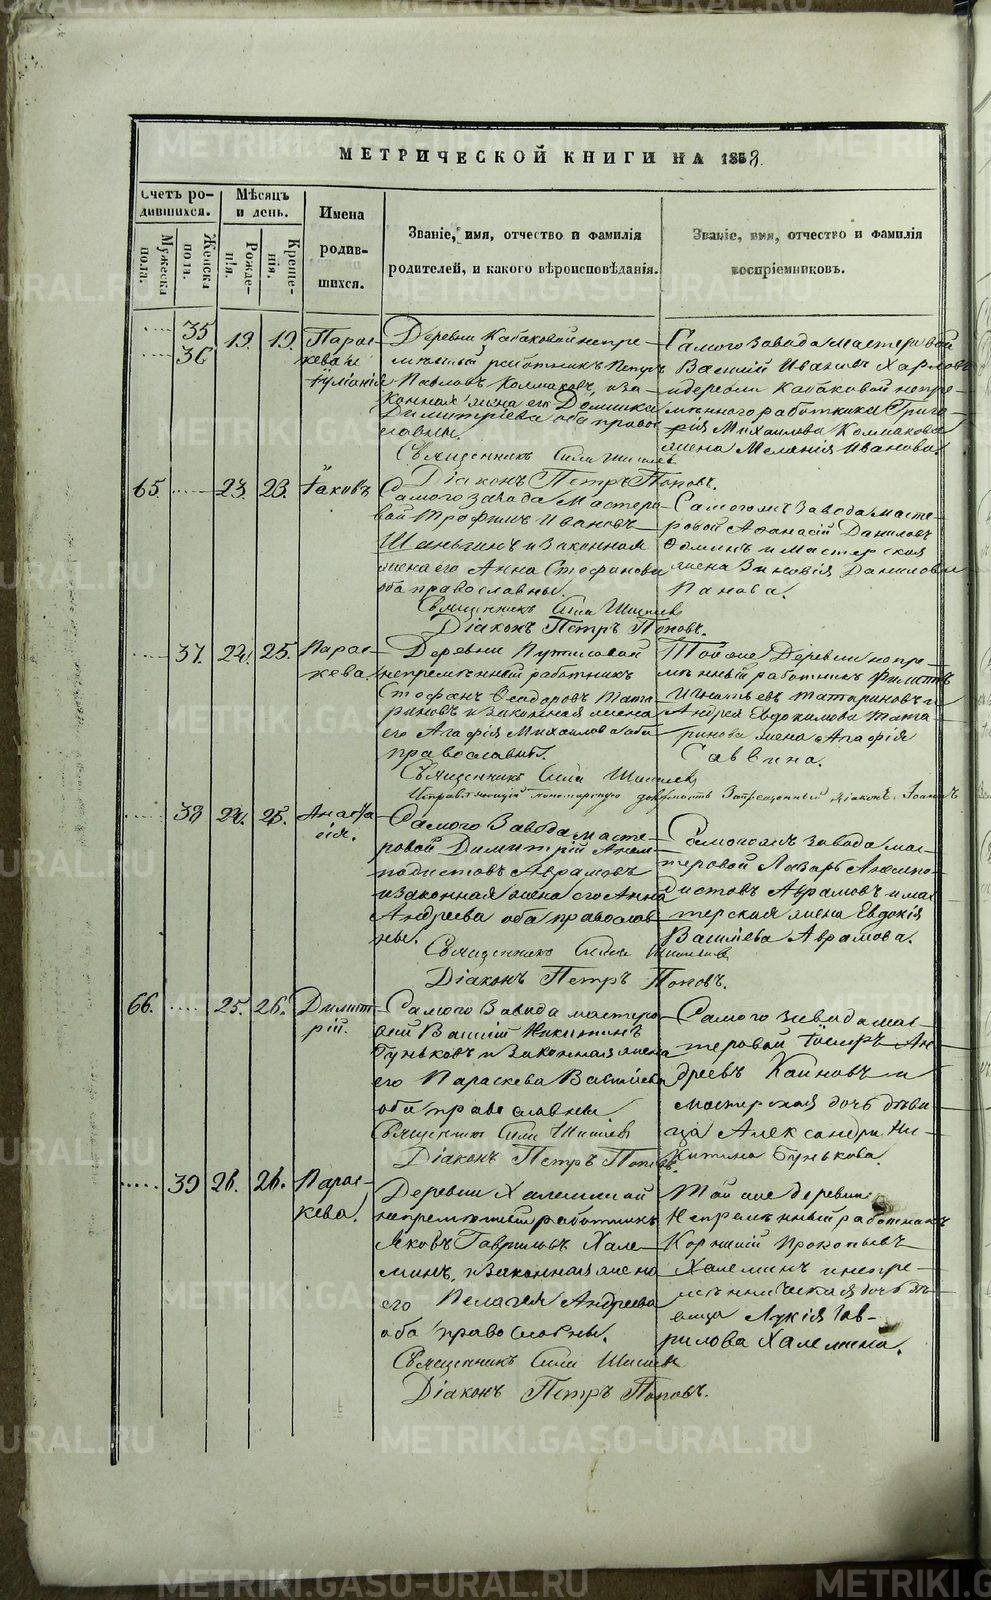 МЕТРИЧЕСКОЙ КНИГИ НА 1858.
Счетъ ро-
дившихся.
Мужеска
пола.
Женска
пола.
Мѣсяцъ
и день.
Рожде-
нія.
Креще-
нія.
Имена
родив-
шихся.
Званіе, имя, отчество и фамилія
родителей, и какого вѣроисповѣданія.
Званіе, имя, отчество и фамилія
воспріемниковъ.
35
36
19. 19.
Парас-
кева и
Іуліанія
Деревни Кабаковой непре-
мѣнный работникъ Петръ
Павловъ Колмаковъ, и за-
конная жена его Домника
Димитріева оба право-
славны.
Священникъ Сила
Діаконъ Петръ Поповъ.
Самого завода мастеровой
Василій Ивановъ Харловъ
и деревни Кабаковой непре-
мѣннаго работника Григо-
рія Михаилова Колмакова
жена Меланія Иванова.
65. 23. 23.
Іаковъ
Самого завода Мастеро-
вой Трофимъ Ивановъ
и законная
жена его Анна Стефанова
оба православны.
Священникъ Сила
Діаконъ Петръ Поповъ.
Самого завода масте-
ровой Афанасій Даниловъ
и Мастерская
жена Зиновія Данилова
Панова.
37. 24. 25.
Парас-
кева.
Деревни Путиловой
непремѣнный работникъ
Стефанъ Ѳеодоровъ Тата-
риновъ и законная жена
его Агафія Михаилова оба
православны.
Священникъ Сила
Исправляющій должность Запрещенный діаконъ Іоаннъ
Той же Деревни непре-
мѣнный работникъ Филиппъ
Игнатьевъ Татариновъ и
Андрея Евдокимова Тата-
ринова жена Агафія
Саввина.
38 24. 25.
Анаста-
сія.
Самого Завода масте-
ровой Димитрій Анем-
подистовъ Аврамовъ
и законная жена его Анна
Андреева оба православ-
ны.
Священникъ Сила
Діаконъ Петръ Поповъ.
Самого завода мас-
теровой Лазарь Анемпо-
дистовъ Аврамовъ и мас-
терская жена Евдокія
Васильева Аврамова.
66. 25. 26.
Димит-
рій.
Самого Завода мастеро-
вой Василій Никитинъ
Буньковъ и законная жена
его Параскева Васильева
оба православны
Священникъ Сила
Діаконъ Петръ Поповъ.
Самого завода мас-
теровой Іосифъ Ан-
дреевъ Каиновъ и
мастерская дочь дѣви-
ца Александра Ни-
китина Бунькова.
39 26. 26.
Парас-
кева.
Деревни Халеминой
непремѣнный работникъ
Яковъ Гавриловъ Хале-
минъ, и законная жена
его Пелагея Андреева
оба православны.
Священникъ Сила
Діаконъ Петръ Поповъ.
Той же деревни
Непремѣнный работникъ
Корнилій Прокопьевъ
Халеминъ и непре-
мѣнническая дочь дѣ-
вица Лукія Гав-
рилова Халемина.
METRIKI.GASO-URAL.RU